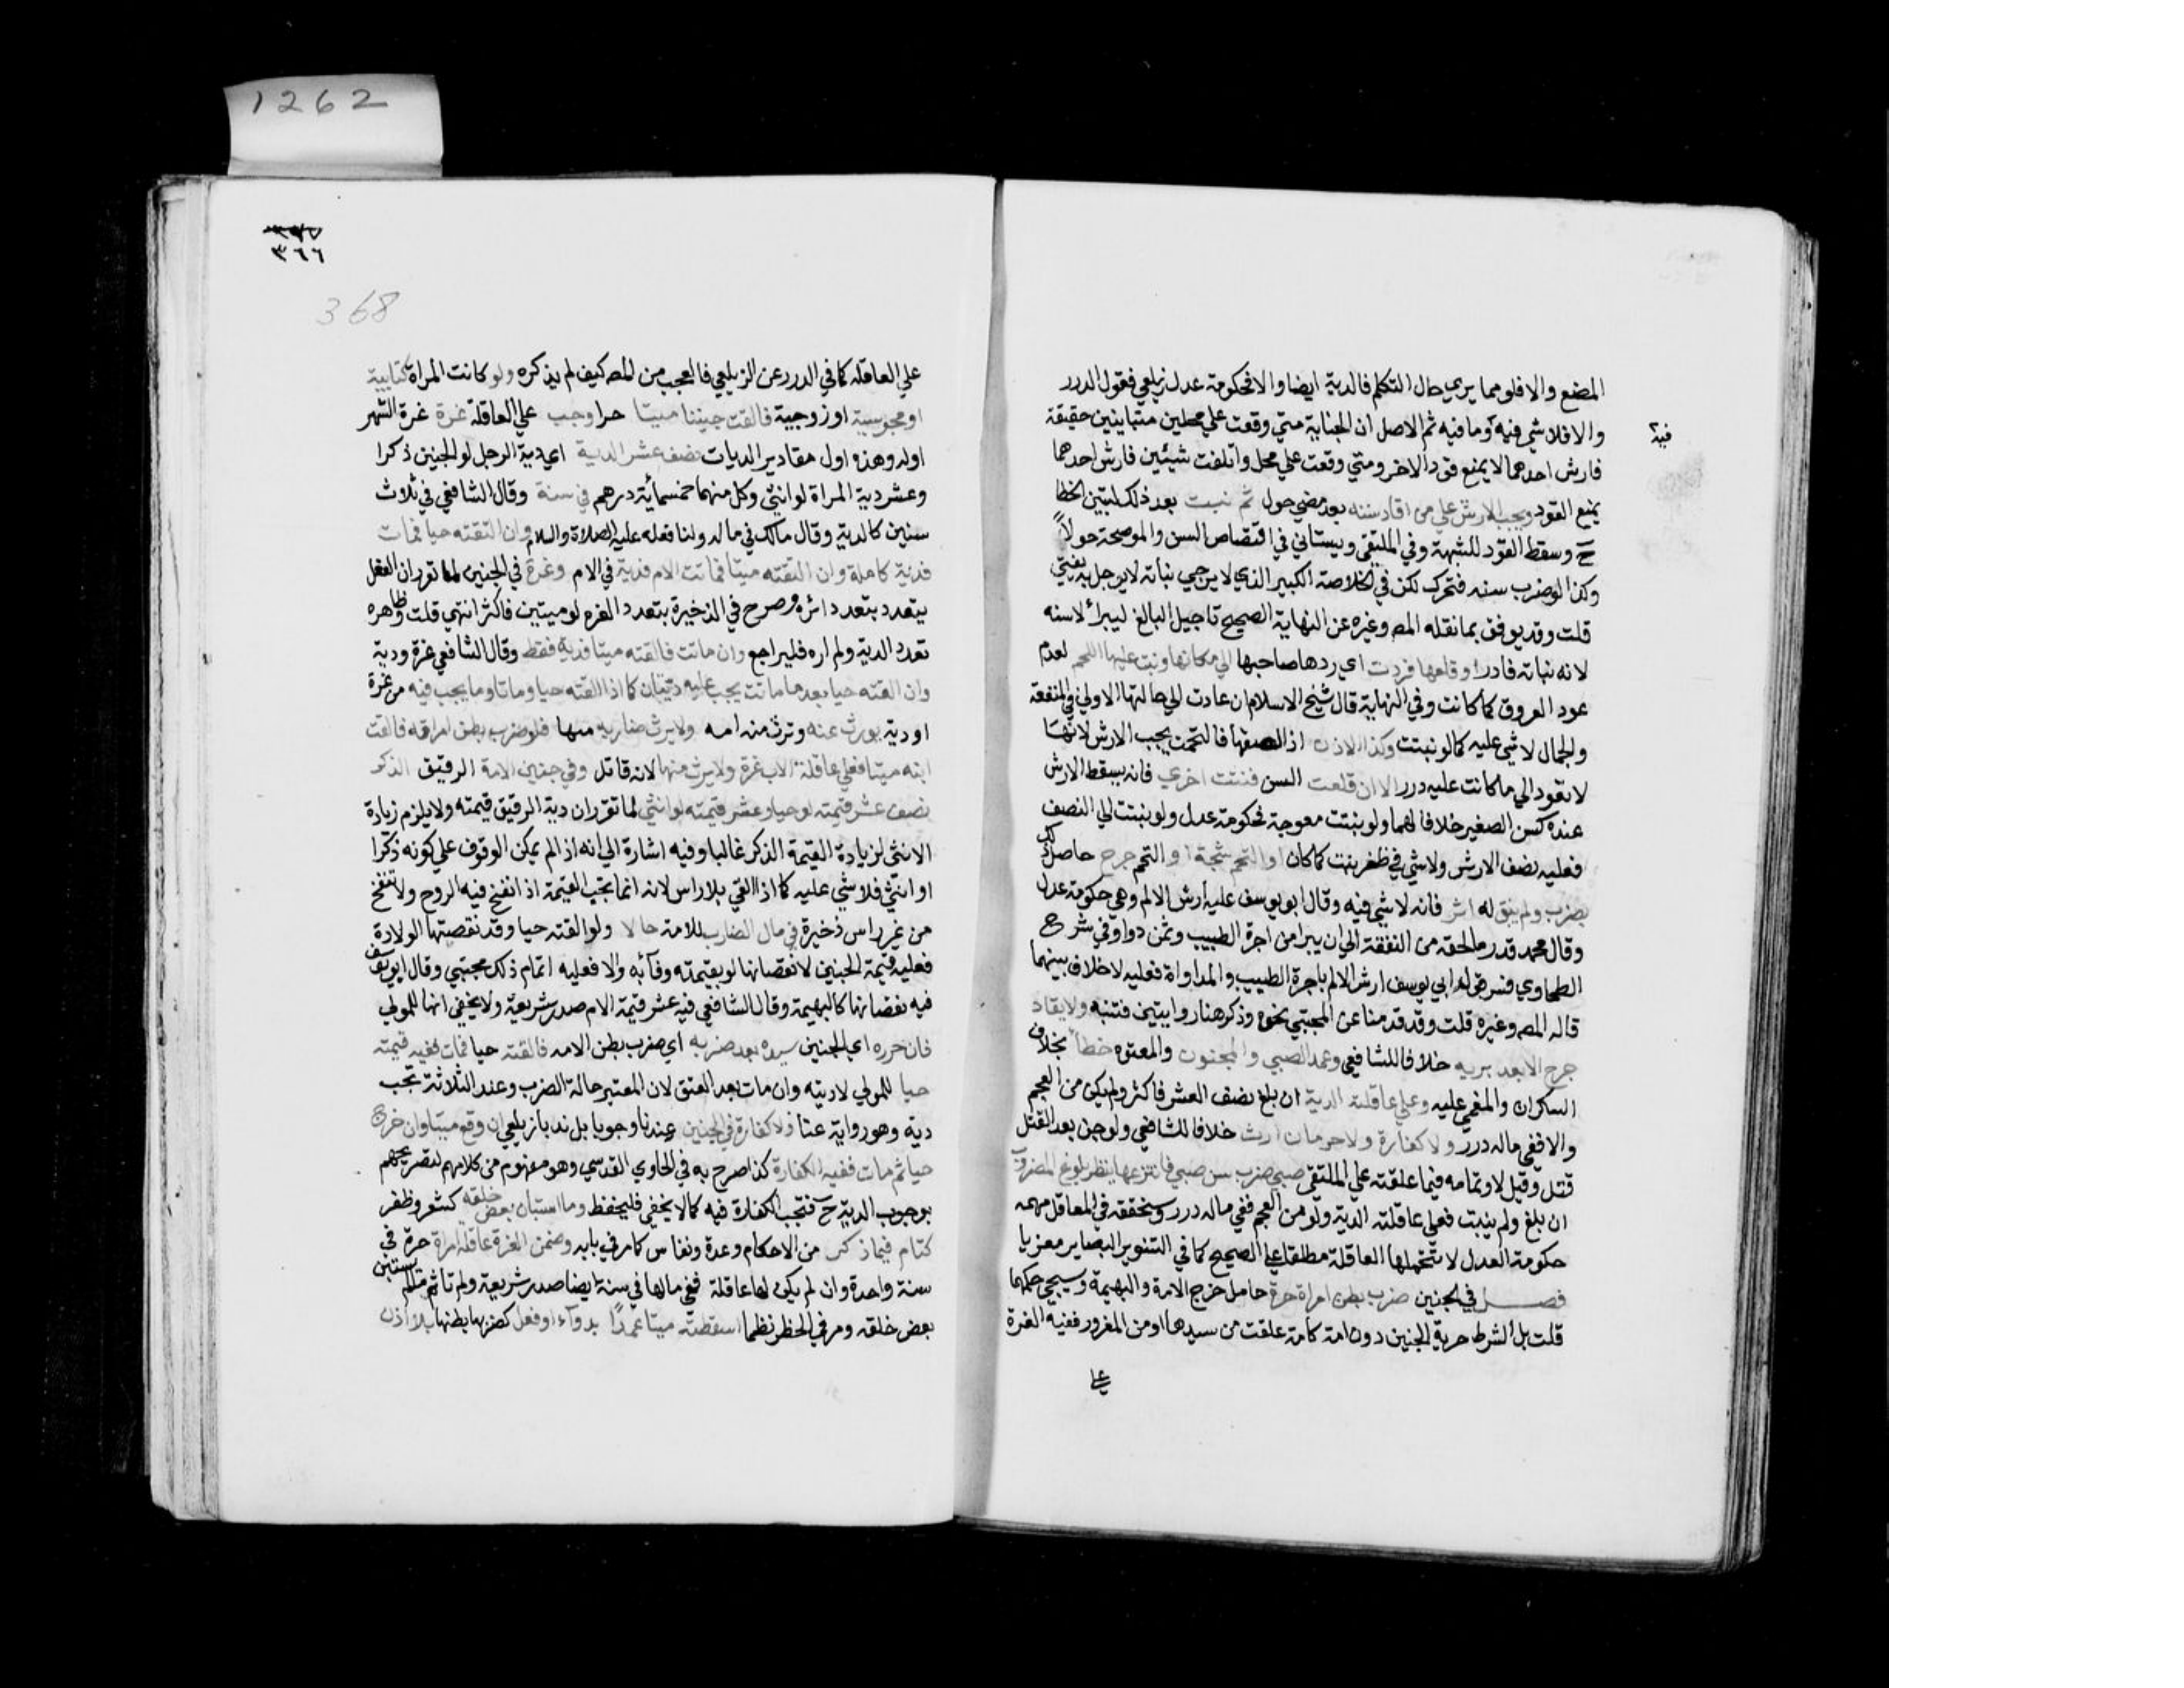 المضع والا فلو مما يري حال التكلم فالدية ايضا والا فحكومة عدل زيلعي فقول الدرر
والا فلا شي فيه فيه ما فيه ثم الاصل ان الجناية متي وقعت علي محلين متباينين حقيقة
فارش احدهما لا يمنع قود الاخر ومتي وقعت علي محل واتلفت شيئين فارش احدهما
يمنع القود ويجب الارش علي من اقاد سنه بعد مضي حول ثم نبت بعد ذلك لتبين الخطا
ح وسقط القود للشبهة وفي الملتقي ويستاني في اقتصاص السن والموضحة حولا
وكذا لو ضرب سنه فتحرك لكن في الخلاصة الكبير الذي لا يرجي نباته لا يؤجل به يفتي
قلت وقد يوفق بما نقله المص وغيره عن النهاية الصحيح تاجيل البالغ ليبرا لا سنه
لانه نباته نادر او قلعها فردت اي ردها صاحبها الي مكانها ونبت عليها اللحم لعدم
عود العروق كما كانت وفي النهاية قال شيخ الاسلام ان عادت الي حالتها الاولي في المنفعة
والجمال لا شي عليه كما لو نبتت وكذا الاذن اذا الصقها فالتحمت يجب الارش لانها
لا تعود الي ما كانت عليه درر الا ان قلعت السن فنبتت اخري فانه يسقط الارش
عنده كسن الصغير خلافا لهما ولو نبتت معوجة فحكومة عدل ولو نبتت الي النصف
فعليه نصف الارش ولا شي في ظفر نبت كما كان او التحم شجة او التحم جرح حاصل
بضرب ولم يبق له اثر فانه لا شي فيه وقال ابو يوسف عليه ارش الالم وهي حكومة عدل
وقال محمد قدر ما لحقه من النفقة الي ان يبرا من اجرة الطبيب وثمن دوا وفي شرح
الطحاوي فسر قول ابي يوسف ارش الالم باجرة الطبيب والمداواة فعليه لا خلاف بينهما
قاله المص وغيره قلت وقد قدمنا عن المجتبي نحوه وذكر هنا روايتين فتنبه ولا يقاد
جرح الا بعد بريه خلافا للشافعي وعمد الصبي والمجنون والمعتوه خطأ بخلاف
السكران والمغمي عليه وعلي عاقلته الدية ان بلغ نصف العشر فاكثر ولم يكن من العجم
والا ففي ماله درر ولا كفارة ولا حرمان ارث خلافا للشافعي ولو جن بعد القتل
قتل وقيل لا وتمامه فيما علقته علي الملتقي صبي ضرب سن صبي فانتزعها ينتظر بلوغ المضروب
ان بلغ ولم ينبت فعلي عاقلته الدية ولو من العجم ففي ماله درر وسنحققه في المعاقل مهمه
حكومة العدل لا تتحملها العاقلة مطلقا علي الصحيح كما في التنوير البصاير معزيا
فصل في الجنين ضرب بطن امراة حرة حامل خرج الامة والبهيمة وسيجي حكمهما
قلت بل الشرط حرية الجنين دون امه كامة علقت من سيدها او من المغرور ففيه الغرة
علي
1262
٣٦٦
368
علي العاقلة كما في الدرر عن الزيلعي فالعجب من المص كيف لم يذكره ولو كانت المراة كتابية
او مجوسية او زوجية فالقت جنينا ميتا حرا وجب علي العاقلة غرة غرة الشهر
اوله وهذه اول مقادير الديات نصف عشر الدية اي دية الرجل لو الجنين ذكرا
وعشر دية المراة لو انثي وكل منهما خمسمائة درهم في سنة وقال الشافعي في ثلاث
سنين كالدية وقال مالك في ماله ولنا فعله عليه الصلاة والسلام وان القته حيا فمات
فدية كاملة وان القته ميتا فماتت الام فدية في الام وغرة في الجنين لما تقرر ان الفعل
يتعدد بتعدد اثره وصرح في الذخيرة بتعدد الغرة لو ميتين فاكثر انتهي قلت وظاهره
تعدد الدية ولم اره فليراجع وان ماتت فالقته ميتا فدية فقط وقال الشافعي غرة ودية
وان القته حيا بعد ما ماتت يجب عليه ديتان كما اذا القته حيا وماتا وما يجب فيه من غرة
او دية يورث عنه وترث منه امه ولا يرث ضاربه منها فلو ضرب بطن امراته فالقت
ابنه ميتا فعلي عاقلة الاب غرة ولا يرث منها لانه قاتل وفي جنين الامة الرقيق الذكر
نصف عشر قيمته لو حيا وعشر قيمته لو انثي لما تقرر ان دية الرقيق قيمته ولا يلزم زيادة
الانثي لزيادة القيمة الذكر غالبا وفيه اشارة الي انه اذا لم يمكن الوقوف علي كونه ذكرا
او انثي فلا شي عليه كما اذا القي بلا راس لانه انما يجب القيمة اذا انفخ فيه الروح ولا تنفخ
من غير راس ذخيرة في مال الضارب للامة حالا ولو القته حيا وقد نقصتها الولادة
فعليه قيمة الجنين لا نقصانها لو بقيمته وفآءبه والا فعليه اتمام ذلك مجتبي وقال ابو يوسف
فيه نقصانها كالبهيمة وقال الشافعي فيه عشر قيمة الام صدر شريعة ولا يخفي انها للمولي
فان حرره اي الجنين سيده بعد ضربه اي ضرب بطن الامه فالقته حيا فمات ففيه قيمته
حيا للمولي لا ديته وان مات بعد العتق لان المعتبر حالة الضرب وعند الثلاثة تجب
دية وهو رواية عنا ولا كفارة في الجنين عندنا وجوبا بل ندبا زيلعي ان وقع ميتا وان خرج
حيا ثم مات ففيه الكفارة كذا صرح به في الحاوي القدسي وهو مفهوم من كلامهم لتصريحهم
بوجوب الدية ح فتجب الكفارة فيه كما لا يخفي فليحفظ وما استبان بعض خلقه كشعر وظفر
كتام فيما ذكر من الاحكام وعدة ونفاس كما مر في بابه وضمن الغرة عاقلة امراة حرة في
سنة واحدة وان لم يكن لها عاقلة ففي مالها في سنة ايضا صدر شريعة ولم تاثم مالم يستبن
بعض خلقه ومر في الحظر نظما اسقطته ميتا عمدا بدوآء او فعل كضربها بطنها بلا اذن